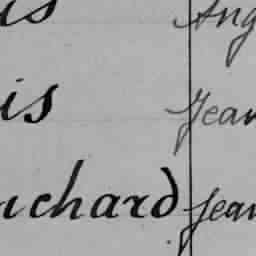 is Ang
is Jean
uchard Jean